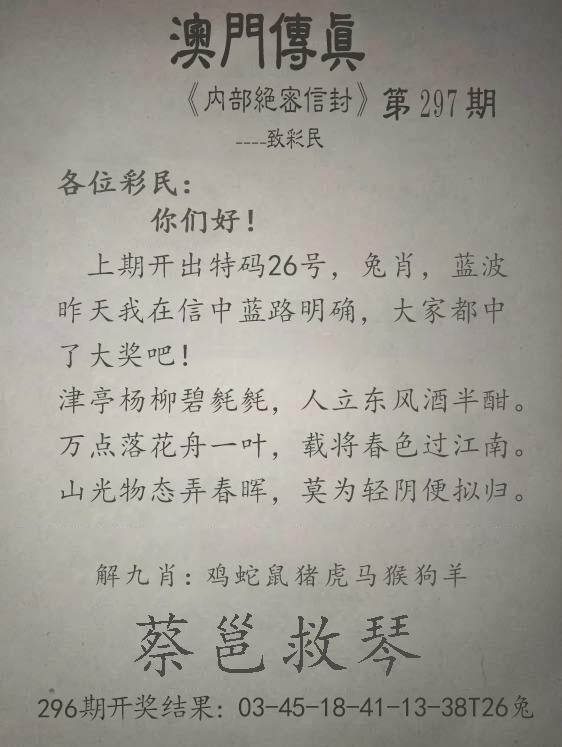 澳門傳真
《内部絕密信封》第297期
----致彩民
各位彩民：
你们好！
上期开出特码26号，兔肖，蓝波
昨天我在信中蓝路明确，大家都中
了大奖吧！
津亭杨柳碧毵毵，人立东风酒半酣。
万点落花舟一叶，载将春色过江南。
山光物态弄春晖，莫为轻阴便拟归。
解九肖：鸡蛇鼠猪虎马猴狗羊
蔡邕救琴
296期开奖结果：03-45-18-41-13-38T26兔